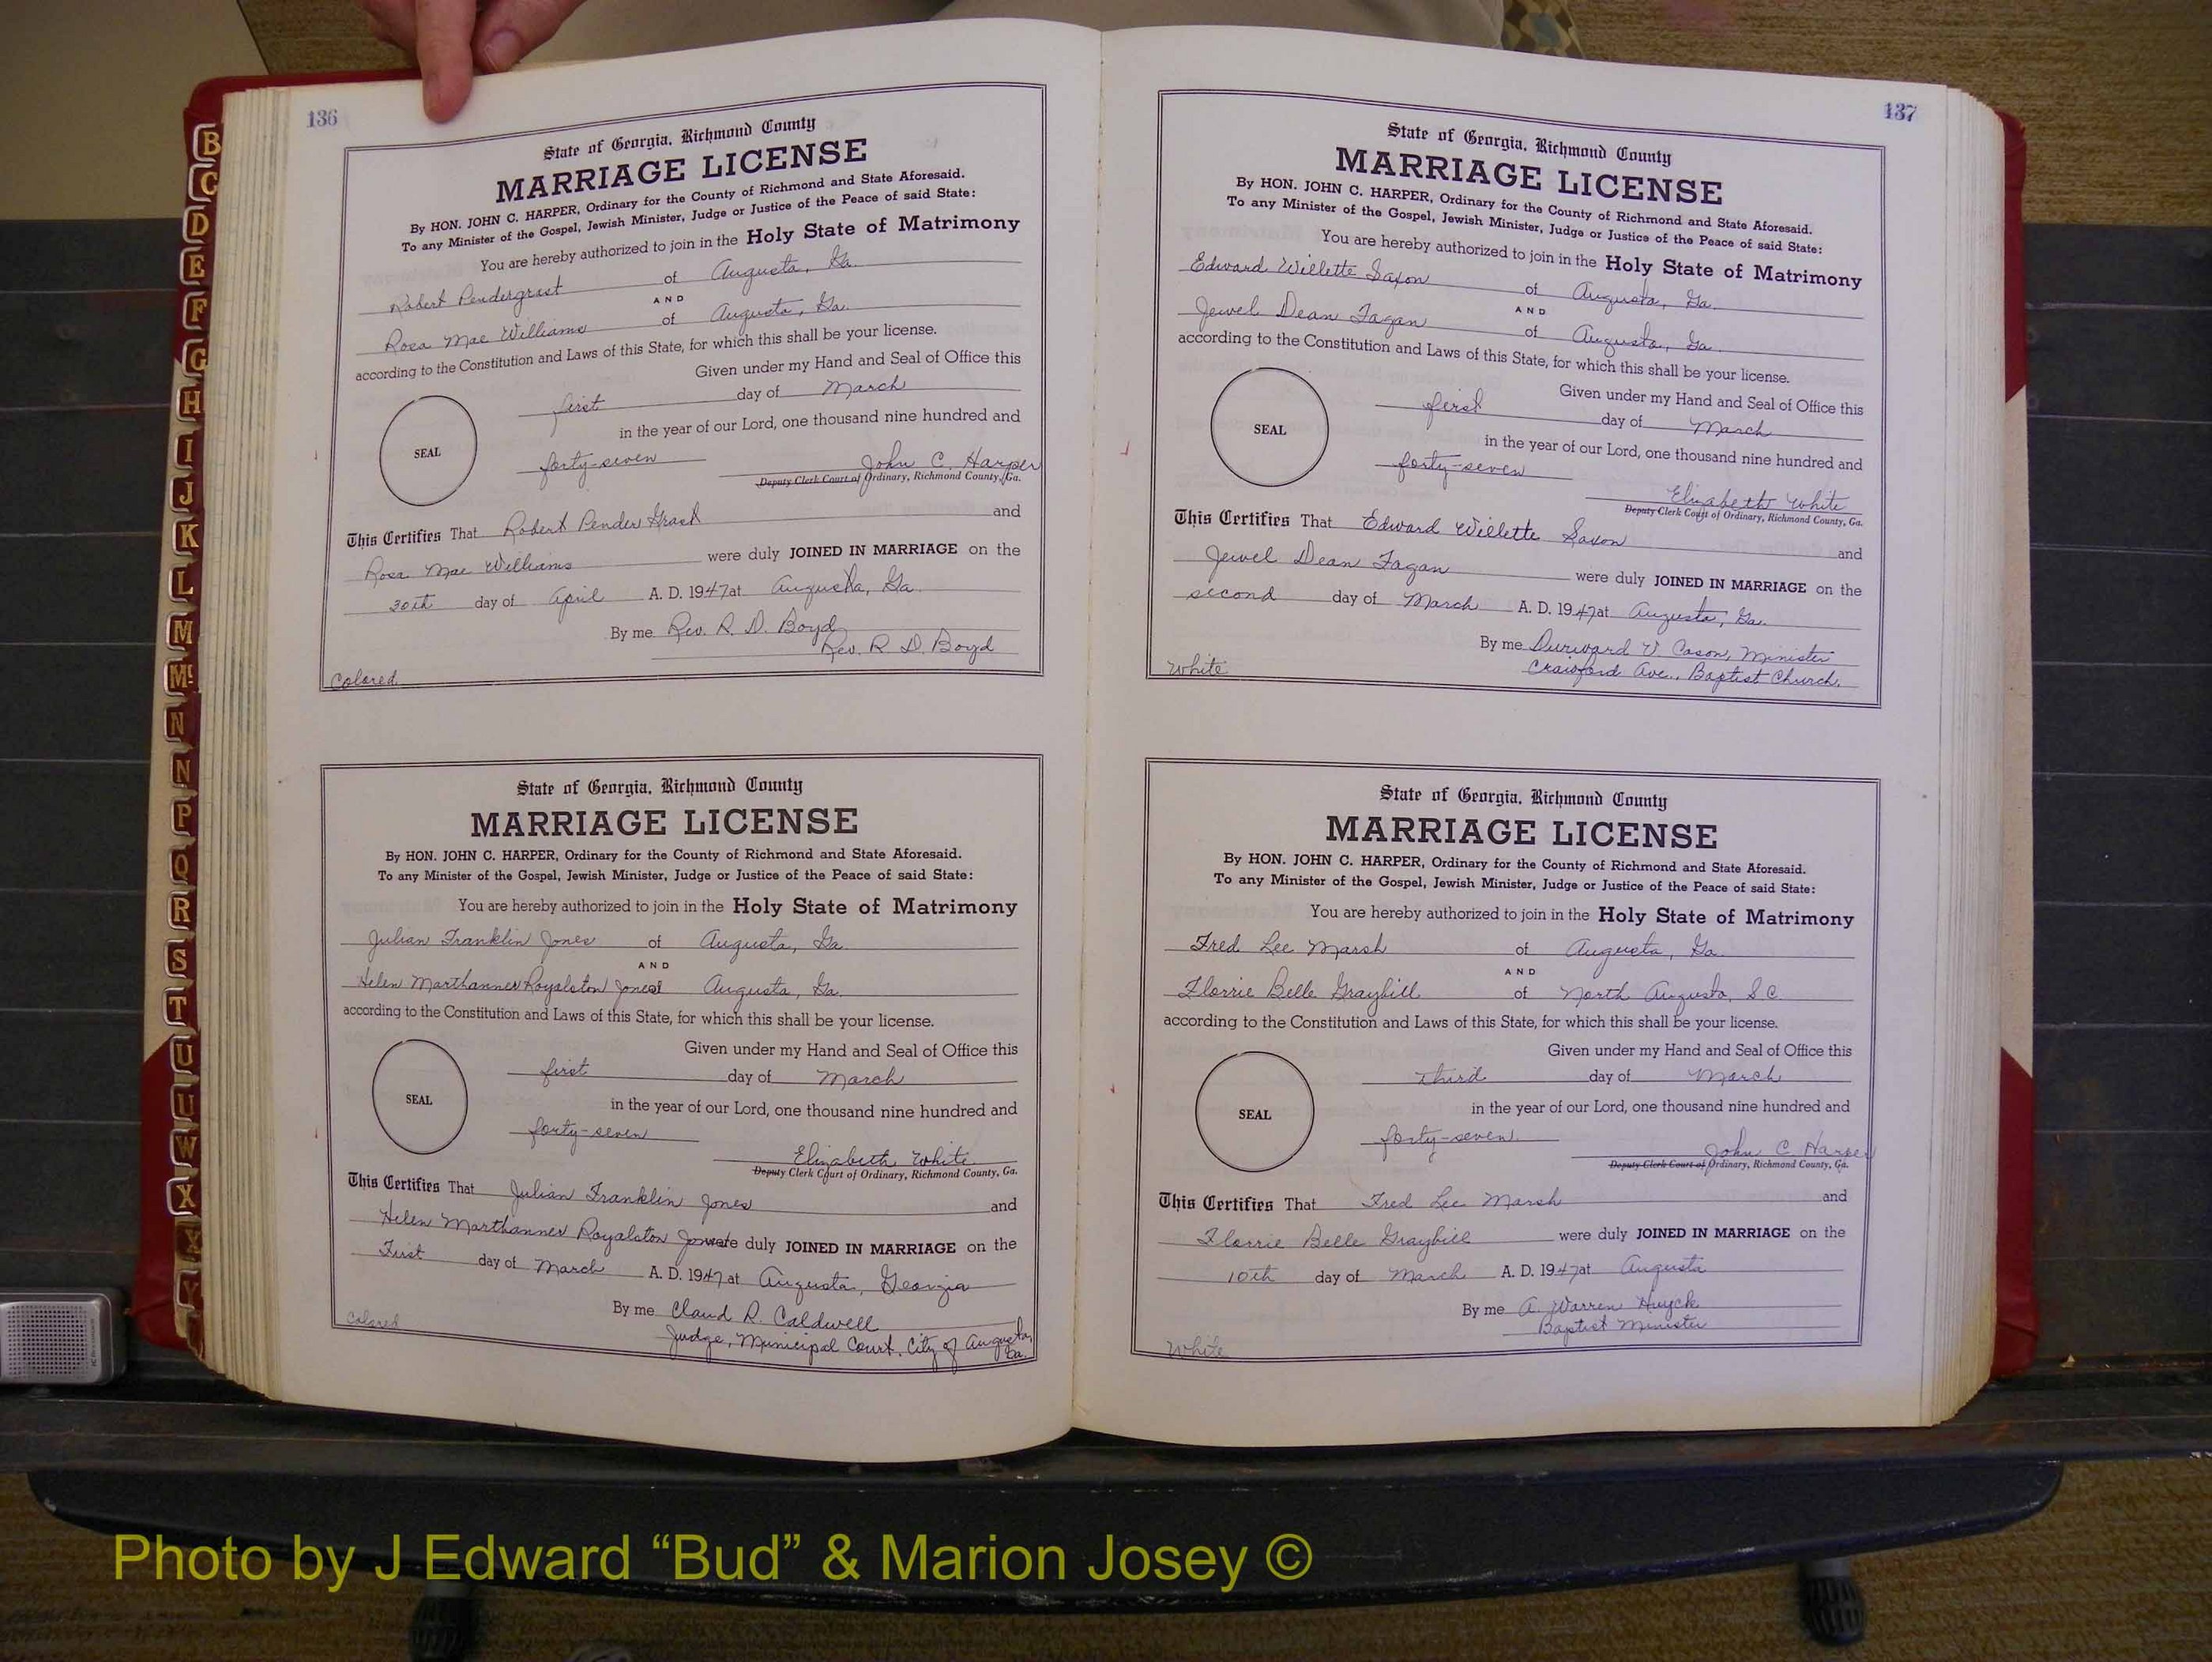 136
State of Georgia, Richmond County
MARRIAGE LICENSE
By HON. JOHN C. HARPER, Ordinary for the County of Richmond and State Aforesaid.
To any Minister of the Gospel, Jewish Minister, Judge or Justice of the Peace of said State:
You are hereby authorized to join in the Holy State of Matrimony
Robert Pendergrast of Augusta, Ga.
AND
Rosa Mae Williams of Augusta, Ga.
according to the Constitution and Laws of this State, for which this shall be your license.
Given under my Hand and Seal of Office this
first day of March
in the year of our Lord, one thousand nine hundred and
SEAL
forty-seven John C. Harper
Deputy Clerk Court of Ordinary, Richmond County, Ga.
This Certifies That Robert Pender Grast and
Rosa Mae Williams were duly JOINED IN MARRIAGE on the
30th day of April A. D. 1947 at Augusta, Ga.
By me Rev. R. D. Boyd
Rev. R. D. Boyd
Colored
State of Georgia, Richmond County
MARRIAGE LICENSE
By HON. JOHN C. HARPER, Ordinary for the County of Richmond and State Aforesaid.
To any Minister of the Gospel, Jewish Minister, Judge or Justice of the Peace of said State:
You are hereby authorized to join in the Holy State of Matrimony
Julian Franklin Jones of Augusta, Ga.
AND
Helen Marthannes Royalston Jones of Augusta, Ga.
according to the Constitution and Laws of this State, for which this shall be your license.
Given under my Hand and Seal of Office this
first day of March
in the year of our Lord, one thousand nine hundred and
SEAL
forty-seven Elizabeth White
Deputy Clerk Court of Ordinary, Richmond County, Ga.
This Certifies That Julian Franklin Jones and
Helen Marthannes Royalston Jones were duly JOINED IN MARRIAGE on the
First day of March A. D. 1947 at Augusta, Georgia
By me Claud R. Caldwell
Judge, Municipal Court, City of Augusta,
Ga.
Colored
137
State of Georgia, Richmond County
MARRIAGE LICENSE
By HON. JOHN C. HARPER, Ordinary for the County of Richmond and State Aforesaid.
To any Minister of the Gospel, Jewish Minister, Judge or Justice of the Peace of said State:
You are hereby authorized to join in the Holy State of Matrimony
Edward Willette Saxon of Augusta, Ga.
AND
Jewel Dean Fagan of Augusta, Ga.
according to the Constitution and Laws of this State, for which this shall be your license.
Given under my Hand and Seal of Office this
first day of March
in the year of our Lord, one thousand nine hundred and
SEAL
forty-seven Elizabeth White
Deputy Clerk Court of Ordinary, Richmond County, Ga.
This Certifies That Edward Willette Saxon and
Jewel Dean Fagan were duly JOINED IN MARRIAGE on the
second day of March A. D. 1947 at Augusta, Ga.
By me Durward V. Cason, Minister
Crawford Ave., Baptist Church.
White
State of Georgia, Richmond County
MARRIAGE LICENSE
By HON. JOHN C. HARPER, Ordinary for the County of Richmond and State Aforesaid.
To any Minister of the Gospel, Jewish Minister, Judge or Justice of the Peace of said State:
You are hereby authorized to join in the Holy State of Matrimony
Fred Lee Marsh of Augusta, Ga.
AND
Florrie Belle Graybill of North Augusta, S.C.
according to the Constitution and Laws of this State, for which this shall be your license.
Given under my Hand and Seal of Office this
Third day of March
in the year of our Lord, one thousand nine hundred and
SEAL
forty-seven. John C. Harper
Deputy Clerk Court of Ordinary, Richmond County, Ga.
This Certifies That Fred Lee Marsh and
Florrie Belle Graybill were duly JOINED IN MARRIAGE on the
10th day of March A. D. 1947 at Augusta
By me A. Warren Huyck
Baptist Minister
White
B
C
D
E
F
G
H
I
J
K
L
M
Mc
N
N
P
Q
R
S
T
U
U
W
X
Y
Photo by J Edward “Bud” & Marion Josey ©